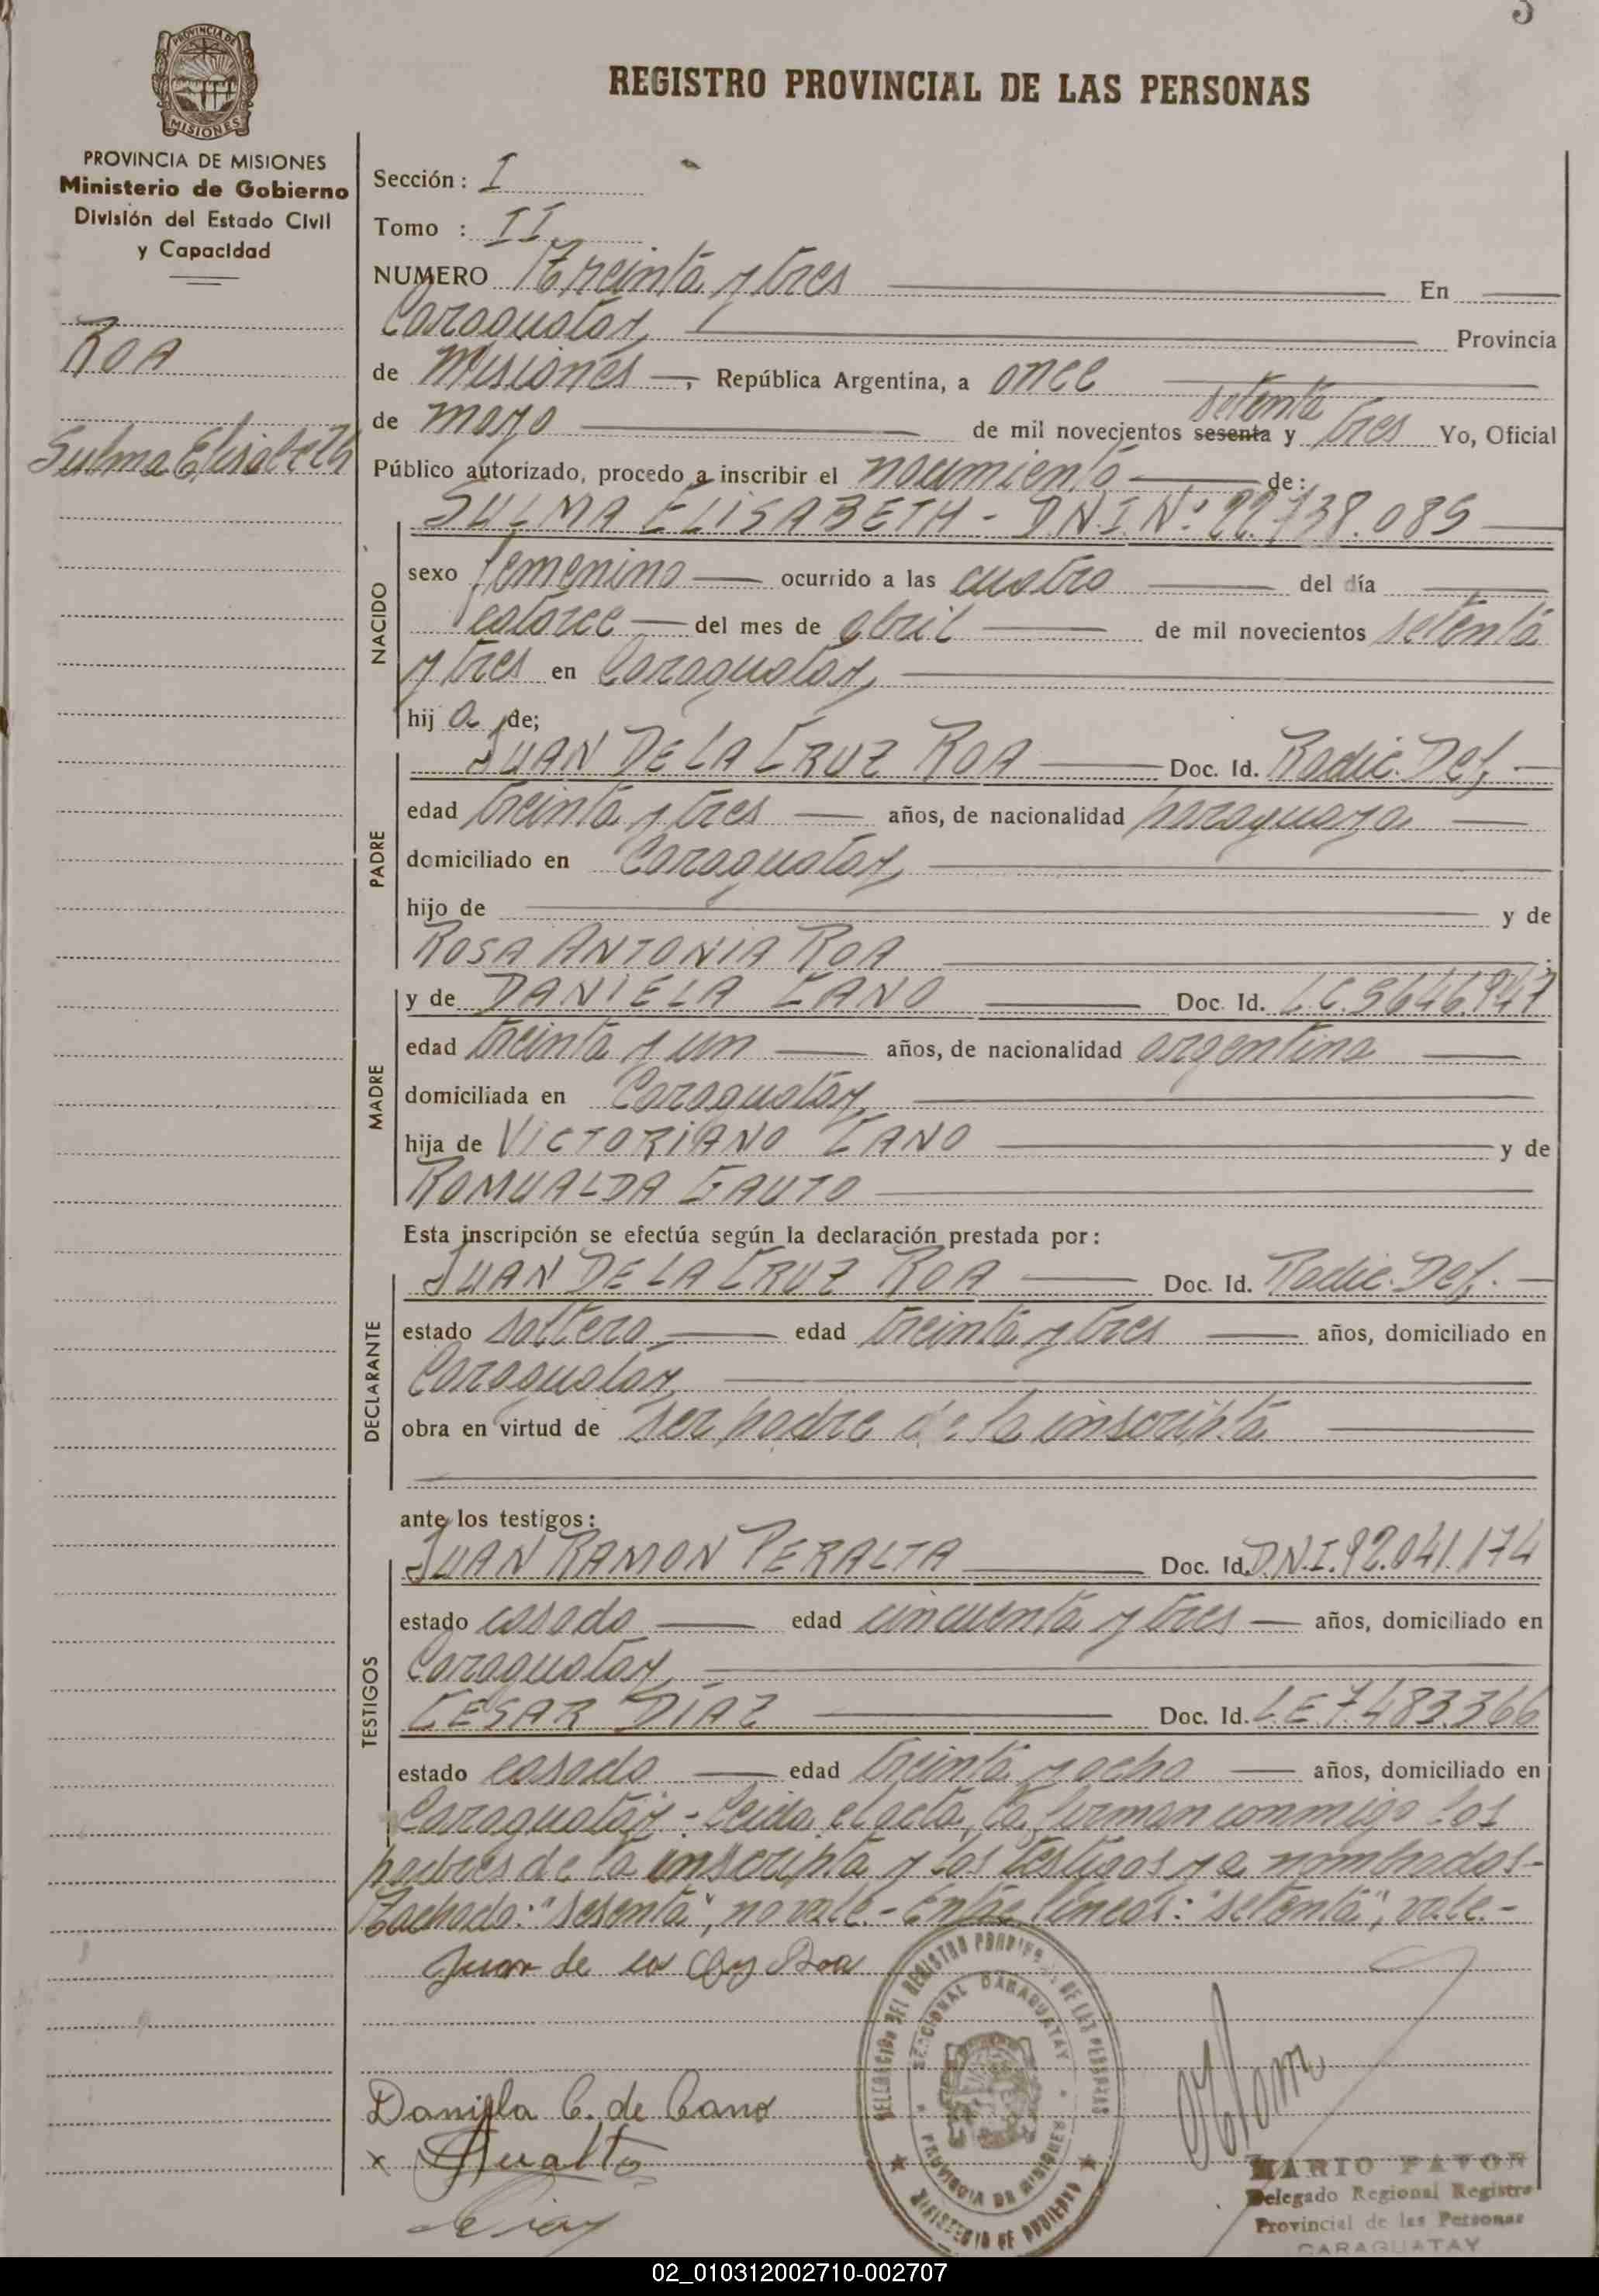 3
REGISTRO PROVINCIAL DE LAS PERSONAS
PROVINCIA DE MISIONES
MISIONES
PROVINCIA DE MISIONES
Ministerio de Gobierno
División del Estado Civil
y Capacidad
ROA
Sulma Elisabeth
Sección: I
Tomo : II
NUMERO Treinta y tres En
Caraguatay Provincia
de Misiones, República Argentina, a once
setenta
de mayo de mil novecientos sesenta y tres Yo, Oficial
Público autorizado, procedo a inscribir el nacimiento de:
SULMA ELISABETH - D.N.I. Nº 22.738.089
NACIDO
sexo femenino ocurrido a las cuatro del día
catorce del mes de abril de mil novecientos setenta
y tres en Caraguatay
hij a de;
PADRE
JUAN DE LA CRUZ ROA Doc. Id. Radic. Def.
edad treinta y tres años, de nacionalidad paraguaya
domiciliado en Caraguatay
hijo de y de
ROSA ANTONIA ROA
MADRE
y de DANIELA CANO Doc. Id. L.C. 5646.947
edad treinta y un años, de nacionalidad argentina
domiciliada en Caraguatay
hija de VICTORIANO CANO y de
ROMUALDA GAUTO
Esta inscripción se efectúa según la declaración prestada por:
DECLARANTE
JUAN DE LA CRUZ ROA Doc. Id. Radic. Def.
estado soltero edad treinta y tres años, domiciliado en
Caraguatay
obra en virtud de ser padre de la inscripta
ante los testigos:
TESTIGOS
JUAN RAMON PERALTA Doc. Id. D.N.I. 92.041.174
estado casado edad cincuenta y tres años, domiciliado en
Caraguatay
CESAR DÍAZ Doc. Id. L E 7.483.366
estado casado edad treinta y ocho años, domiciliado en
Caraguatay - Leida el acta, la firman conmigo los
padres de la inscripta y los testigos ya nombrados -
Tachado: "sesenta", no vale. - Entre líneas: "setenta", vale -
Juan de la Roa
Daniela C. de Cano
x Peralta
DELEGACION DEL REGISTRO PROVINCIAL DE LAS PERSONAS
SECCIONAL CARAGUATAY
PROVINCIA DE MISIONES
MINISTERIO DE GOBIERNO
MARIO PAVON
Delegado Regional Registro
Provincial de las Personas
CARAGUATAY
02_010312002710-002707